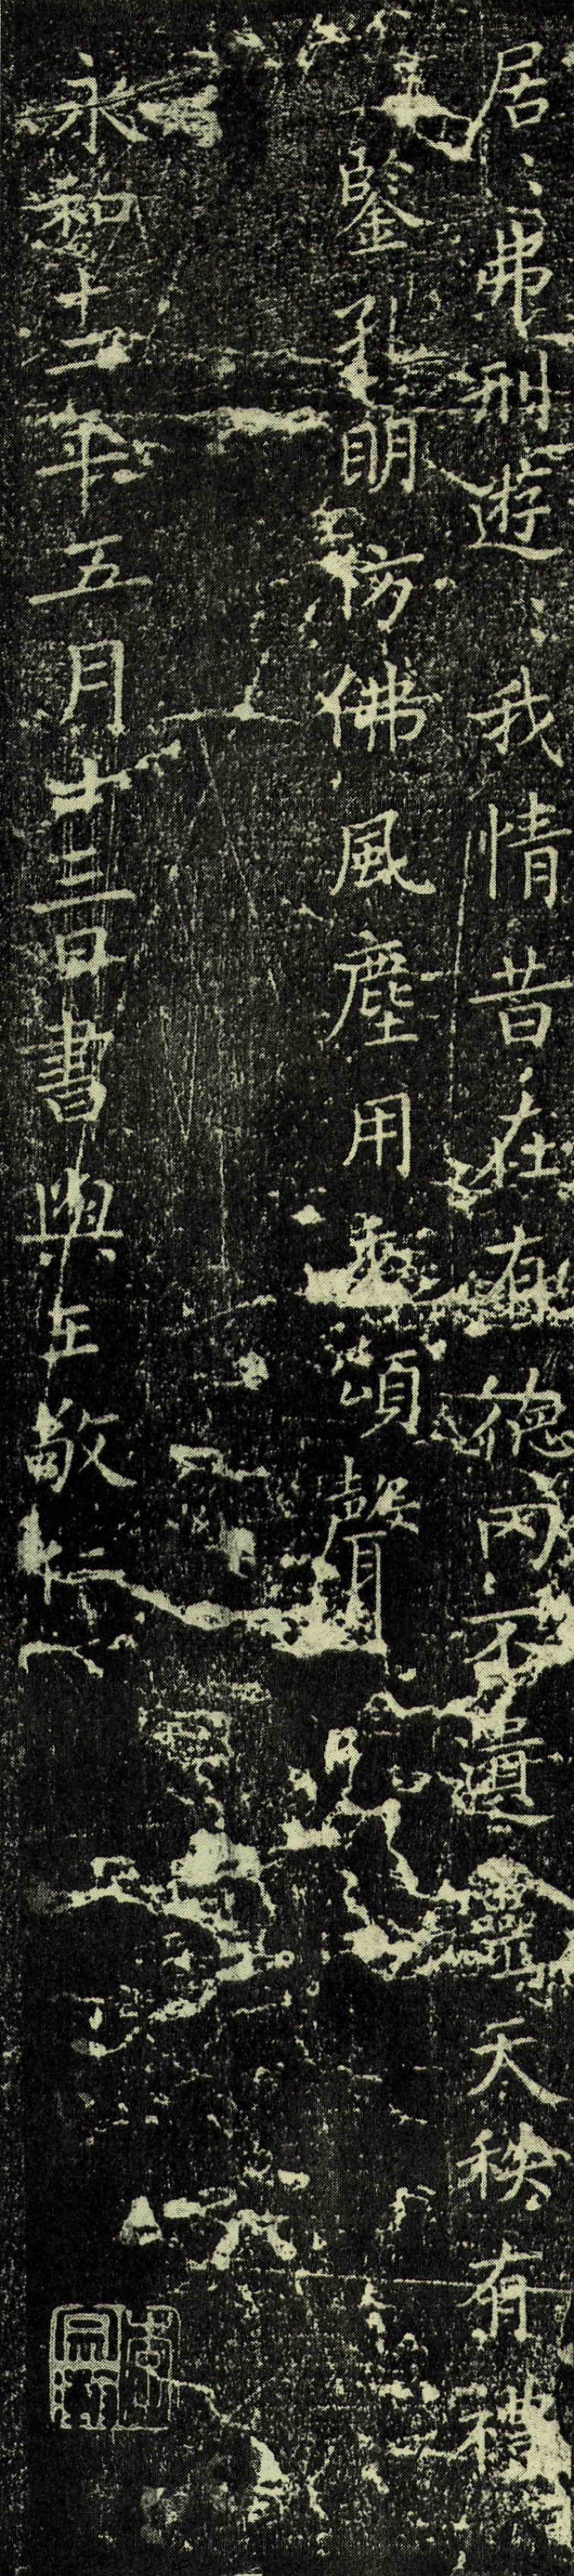 居〻弗刑遊〻我情昔在有德罔不遺靈天秩有禮
鑒孔明彷佛風塵用垂頌聲
永和十二年五月十三日書與王敬仁